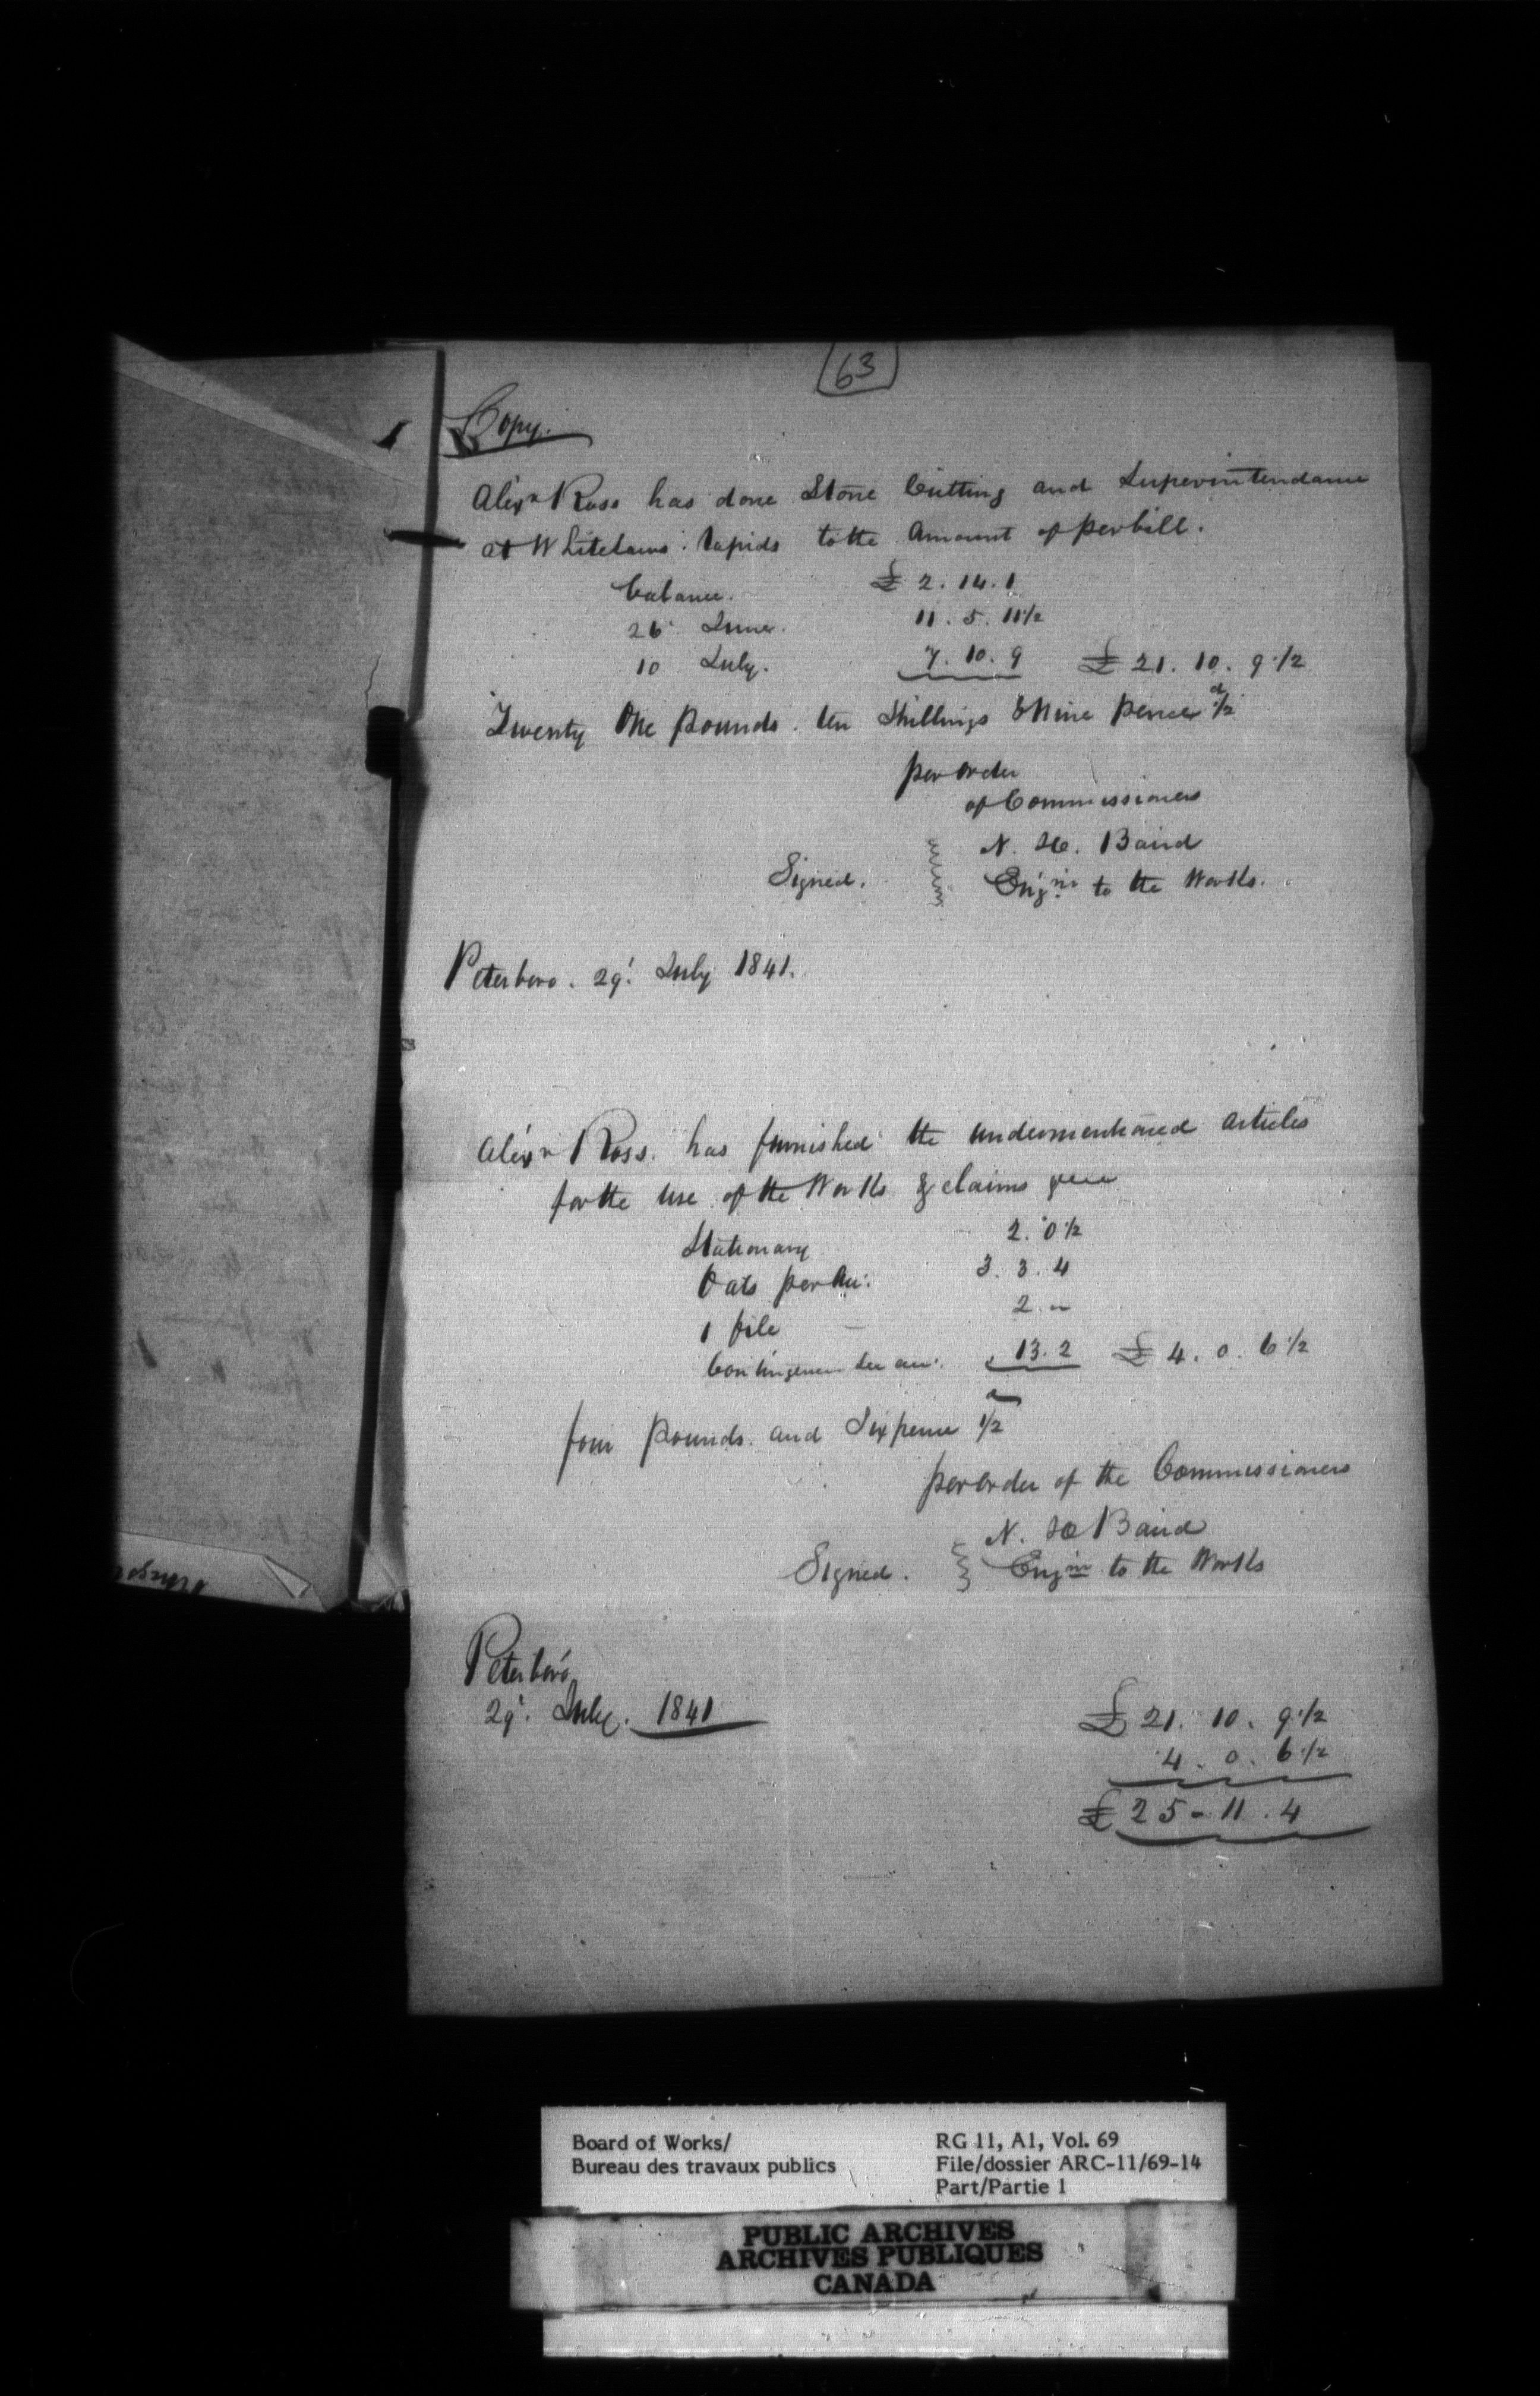 63
Copy.
Alexr Ross has done Stone Cutting and Superintendance
at Whitelaws rapids to the amount of per bill.
balance. £ 2. 14. 1
26 June. 11. 5. 11½
10 July. 7. 10. 9 £ 21. 10. 9½
Twenty One pounds ten Shillings & Nine pence ½d
per order
of Commissioners
N. H. Baird
Signed. Engnr to the Works.
Peterboro. 29. July 1841.
Alexr Ross. has furnished the undermentioned articles
for the use of the Works & claims
Stationary 2. 0½
Oats per Au: 3. 3. 4
1 file 2. -
13. 2 £ 4. 0. 6½
four pounds. and Sixpence ½
per order of the Commissioners
N. H Baird
Signed. Engnr to the Works
Peterboro
29. July. 1841
£ 21. 10. 9½
4. 0. 6½
£ 25 - 11. 4
Board of Works/
Bureau des travaux publics
RG 11, A1, Vol. 69
File/dossier ARC-11/69-14
Part/Partie 1
PUBLIC ARCHIVES
ARCHIVES PUBLIQUES
CANADA